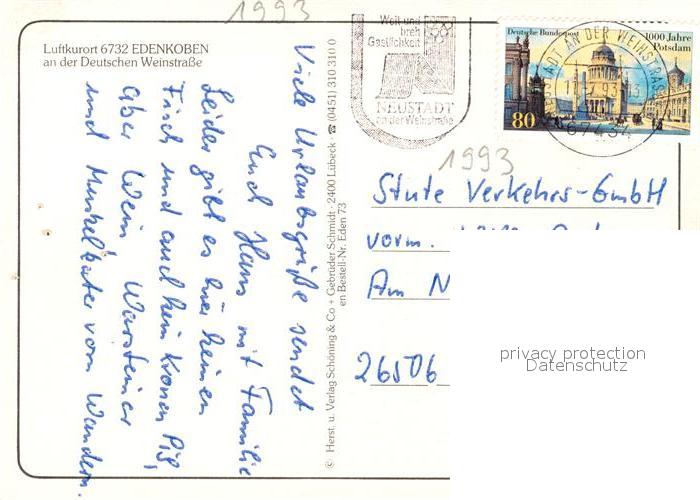 1993
Luftkurort 6732 EDENKOBEN
an der Deutschen Weinstraße
Viele Urlaubsgrüße sendet
Euch Hans mit Familie
Leider gibt es hier keinen
Fisch und auch kein Kronen Pils,
aber Wein Warsteiner
und Muskelkater vom Wandern.
© Herst. u. Verlag Schöning & Co + Gebrüder Schmidt · 2400 Lübeck · ☎ (0451) 310 310 0
en Bestell-Nr. Eden 73
Gastlichkeit
NEUSTADT
an der Weinstraße
Deutsche Bundespost
1000 Jahre
Potsdam
80
STADT AN DER WEINSTRASSE
67434
1993
Stute Verkehrs-GmbH
vorm.
Am N
26506
privacy protection
Datenschutz